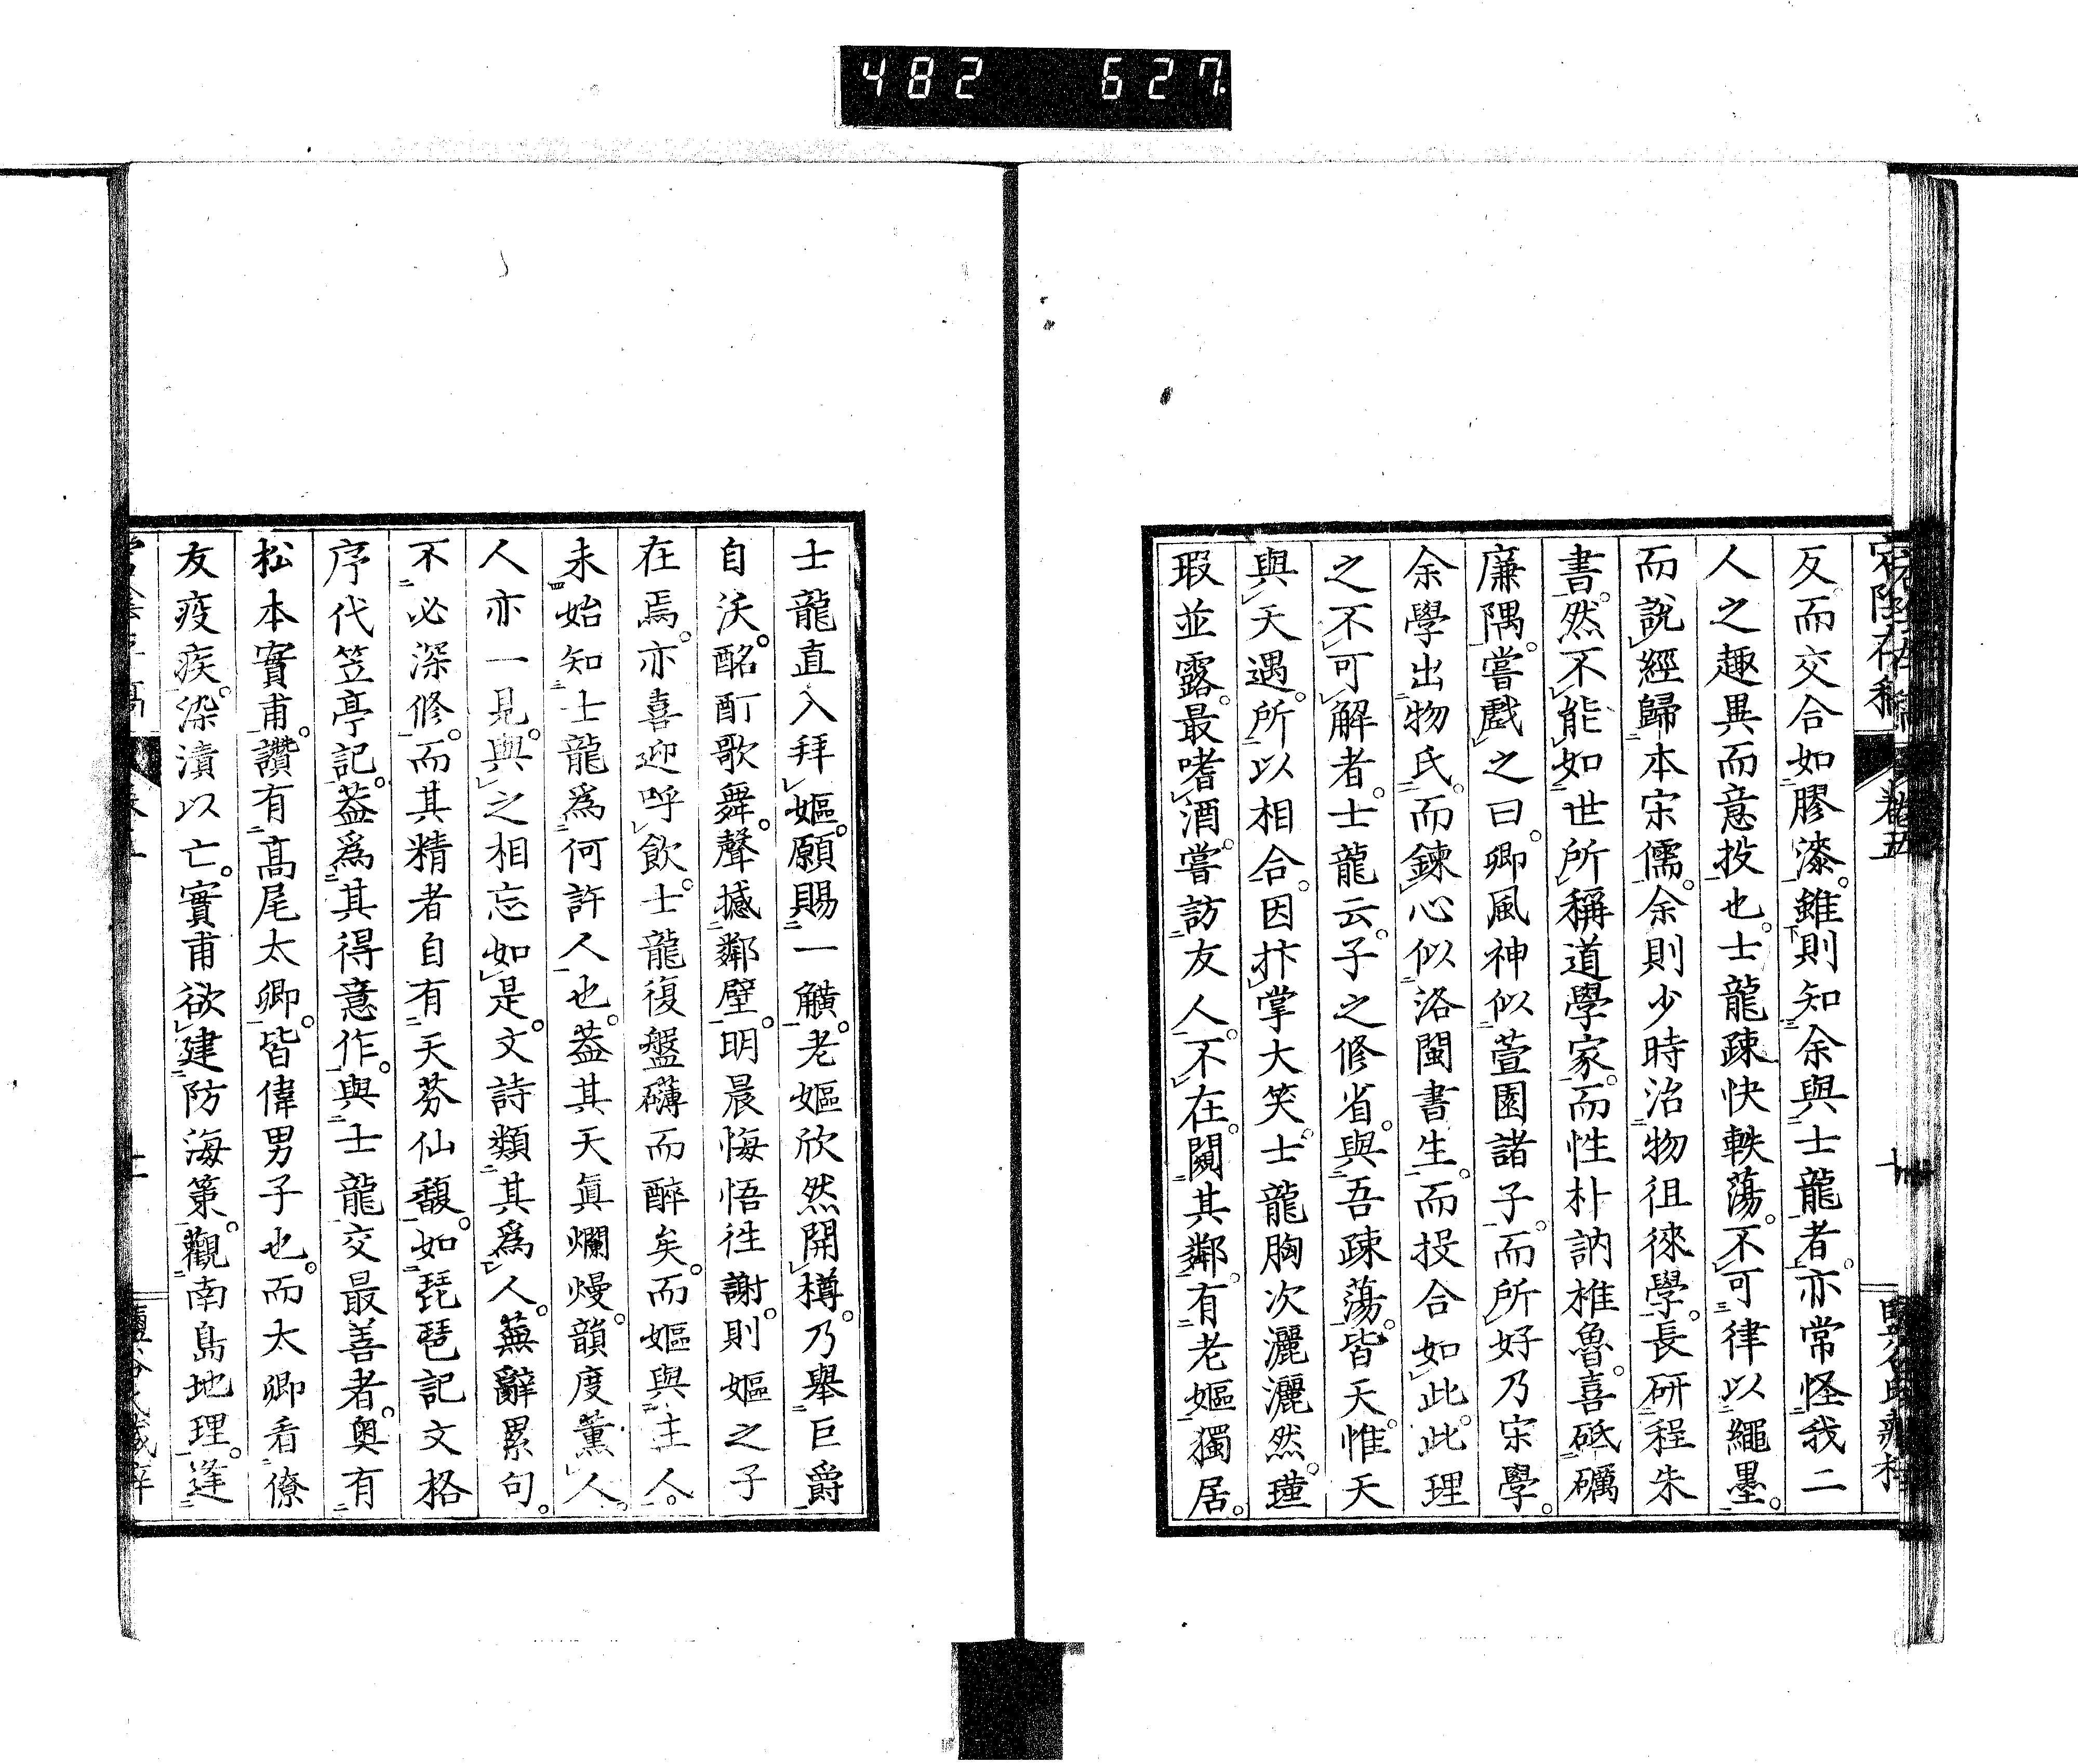 482 627
反。而交合如膠漆。雖則知余與士龍者。亦常怪我二
人之趣異而意投也。士龍疎快軼蕩。不可律以繩墨。
而說經歸本宋儒。余則少時治物徂徠學。長研程朱
書。然不能如世所稱道學家。而性朴訥椎魯。喜砥礪
廉隅。嘗戲之曰。卿風神似萱園諸子。而所好乃宋學。
余學出物氏。而鍊心似洛閩書生。而投合如此。此理
之不可解者。士龍云。子之修省。與吾疎蕩。皆天。惟天
與天遇。所以相合。因抃掌大笑。士龍胸次灑灑然。瑾
瑕並露。最嗜酒。嘗訪友人。不在。闞其鄰。有老嫗獨居。
士龍直入拜嫗。願賜一觥。老嫗欣然開樽。乃舉巨爵
自沃。酩酊歌舞。聲撼鄰壁。明晨悔悟徃謝。則嫗之子
在焉。亦喜迎呼飲。士龍復盤礴而醉矣。而嫗與主人。
未始知士龍爲何許人也。葢其天眞爛熳。韻度薰人。
人亦一見。與之相忘如是。文詩類其爲人。蕪辭累句。
不必深修。而其精者自有天芬仙馥。如琵琶記文格
序代笠亭記。葢爲其得意作。與士龍交最善者。奥有
松本實甫。讚有高尾太卿。皆偉男子也。而太卿看僚
友疫疾。染漬以亡。實甫欲建防海策。觀南島地理。逢